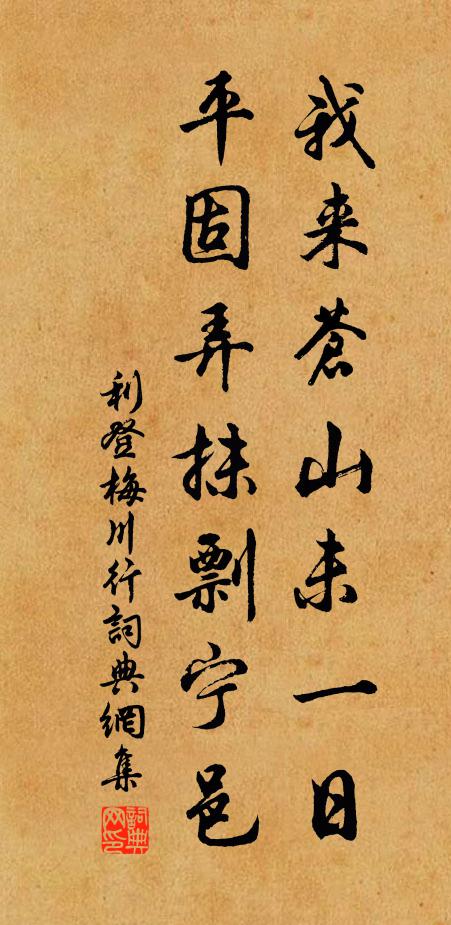 我来苍山未一日
平固弄抹剽宁邑
利登梅川行詞典網集
詞典网印